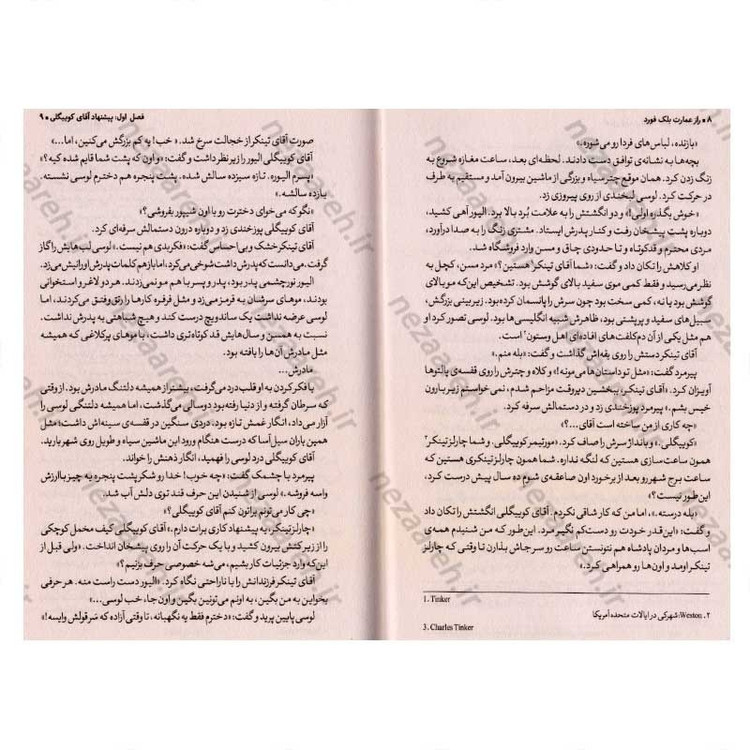 ۸ ● راز عمارت بلک فورد
«بازنده، لباس‌های فردا رو می‌شوره.»
بچه‌ها به نشانه‌ی توافق دست دادند. لحظه‌ای بعد، ساعت مغازه شروع به
زنگ زدن کرد. همان موقع چتر سیاه و بزرگی از ماشین بیرون آمد و مستقیم به طرف
در حرکت کرد. لوسی لبخندی از روی پیروزی زد.
«خوش بگذره اولی!» و دو انگشتش را به علامت بُرد بالا برد. الیور آهی کشید،
دوباره پشت پیشخان رفت و کنار پدرش ایستاد. مشتری زنگ را به صدا درآورد،
مردی محترم و قدکوتاه و تا حدودی چاق و مسن وارد فروشگاه شد.
او کلاهش را تکان داد و گفت: «شما آقای تینکر¹ هستین؟» مرد مسن، کچل به
نظر می‌رسید و فقط کمی موی سفید بالای گوشش بود. تشخیص این‌که مو بالای
گوشش بود یا نه، کمی سخت بود چون سرش را پانسمان کرده بود. زیر بینی بزرگش،
سبیل‌های سفید و پرپشتی بود، ظاهرش شبیه انگلیسی‌ها بود. لوسی تصور کرد او
هم مثل یکی از آن دم‌کلفت‌های افاده‌ای اهل وستون² است.
آقای تینکر دستش را روی یقه‌اش گذاشت و گفت: «بله منم.»
پیرمرد گفت: «مثل تو داستان‌ها می‌مونه!» و کلاه و چترش را روی قفسه‌ی پالتوها
آویزان کرد. «آقای تینکر، ببخشین دیروقت مزاحم شدم، نمی‌خواستم زیر بارون
خیس بشم.» پیرمرد پوزخندی زد و در دستمالش سرفه کرد.
«چه کاری از من ساخته است آقای...؟»
«کوییگلی.»، و بانداژ سرش را صاف کرد. «مورتیمر کوییگلی. و شما چارلز تینکر³
همون ساعت‌سازی هستین که لنگه نداره. شما همون چارلز تینکری هستین که
ساعت برج شهر رو بعد از برخورد اون صاعقه‌ی شوم ده سال پیش درست کرد،
این‌طور نیست؟»
«بله درسته.»، اما من که کار شاقی نکردم. آقای کوییگلی انگشتش را تکان داد
و گفت: «این‌قدر خودت رو دست‌کم نگیر مرد. این‌طور که من شنیدم همه‌ی
اسب‌ها و مردان پادشاه هم نتونستن ساعت رو سر جاش بذارن تا وقتی که چارلز
تینکر اومد و اون‌ها رو همراهی کرد.»
1. Tinker
۲. Weston: شهرکی در ایالات متحده آمریکا
3. Charles Tinker
فصل اول: پیشنهاد آقای کوییگلی ● ۹
صورت آقای تینکر از خجالت سرخ شد. «خب! یه کم بزرگش می‌کنین، اما...»
آقای کوییگلی الیور را زیر نظر داشت و گفت: «و اون که پشت شما قایم شده کیه؟»
«پسرم الیوره. تازه سیزده سالش شده. پشت پنجره هم دخترم لوسی نشسته.
یازده سالشه.»
«نگو که می‌خوای دخترت رو با اون شیپور بفروشی؟»
آقای کوییگلی پوزخندی زد و دوباره درون دستمالش سرفه‌ای کرد.
آقای تینکر خشک و بی‌احساس گفت: «فکر بدی هم نیست.» لوسی لب‌هایش را گاز
گرفت. می‌دانست که پدرش داشت شوخی می‌کرد، اما باز هم کلمات پدرش او را نیش می‌زد.
الیور نورچشمی پدر بود، پدر و پسر با هم مو نمی‌زدند. هر دو لاغر و استخوانی
بودند، موهای سرشان به قرمز می‌زد و مثل فرفره کارها را رتق‌وفتق می‌کردند، اما
لوسی عرضه نداشت یک ساندویچ درست کند و هیچ شباهتی به پدرش نداشت.
نسبت به همسن و سال‌هایش قد کوتاه‌تری داشت، با موهای پرکلاغی که همیشه
مثل مادرش آن‌ها را بافته بود.
مادرش...
با فکر کردن به او قلب درد می‌گرفت، بیشتر از همیشه دلتنگ مادرش بود. از وقتی
که سرطان گرفته و از دنیا رفته بود دو سالی می‌گذشت، اما همیشه دلتنگی لوسی را
آزار می‌داد، انگار غمش تازه بود. دردی سنگین در قفسه‌ی سینه‌اش داشت؛ مثل
همین باران سیل‌آسا که درست هنگام ورود این ماشین سیاه و طویل روی شهر بارید.
آقای کوییگلی درد لوسی را فهمید، انگار ذهنش را خواند.
پیرمرد با چشمک گفت: «چه خوب! خدا رو شکر پشت پنجره یه چیز باارزش
واسه فروشه.» لوسی از شنیدن این حرف قند توی دلش آب شد.
«چی کار می‌تونم براتون کنم آقای کوییگلی؟»
«چارلز تینکر، یه پیشنهاد کاری برات دارم.» آقای کوییگلی کیف مخمل کوچکی
را از زیر کتش بیرون کشید و با یک حرکت آن را روی پیشخان انداخت. «ولی قبل از
این‌که وارد جزئیات کار بشیم، می‌شه خصوصی حرف بزنیم؟»
آقای تینکر فرزندانش را با ناراحتی نگاه کرد. «الیور دست راست منه. هر حرفی
بخواین به من بگین، به اونم می‌تونین بگین و اون جا، خب لوسی...»
لوسی پایین پرید و گفت: «دخترم فقط یه نگهبانه، تا وقتی آزاده که سَر قولش وایسه!»
nezaareh.ir